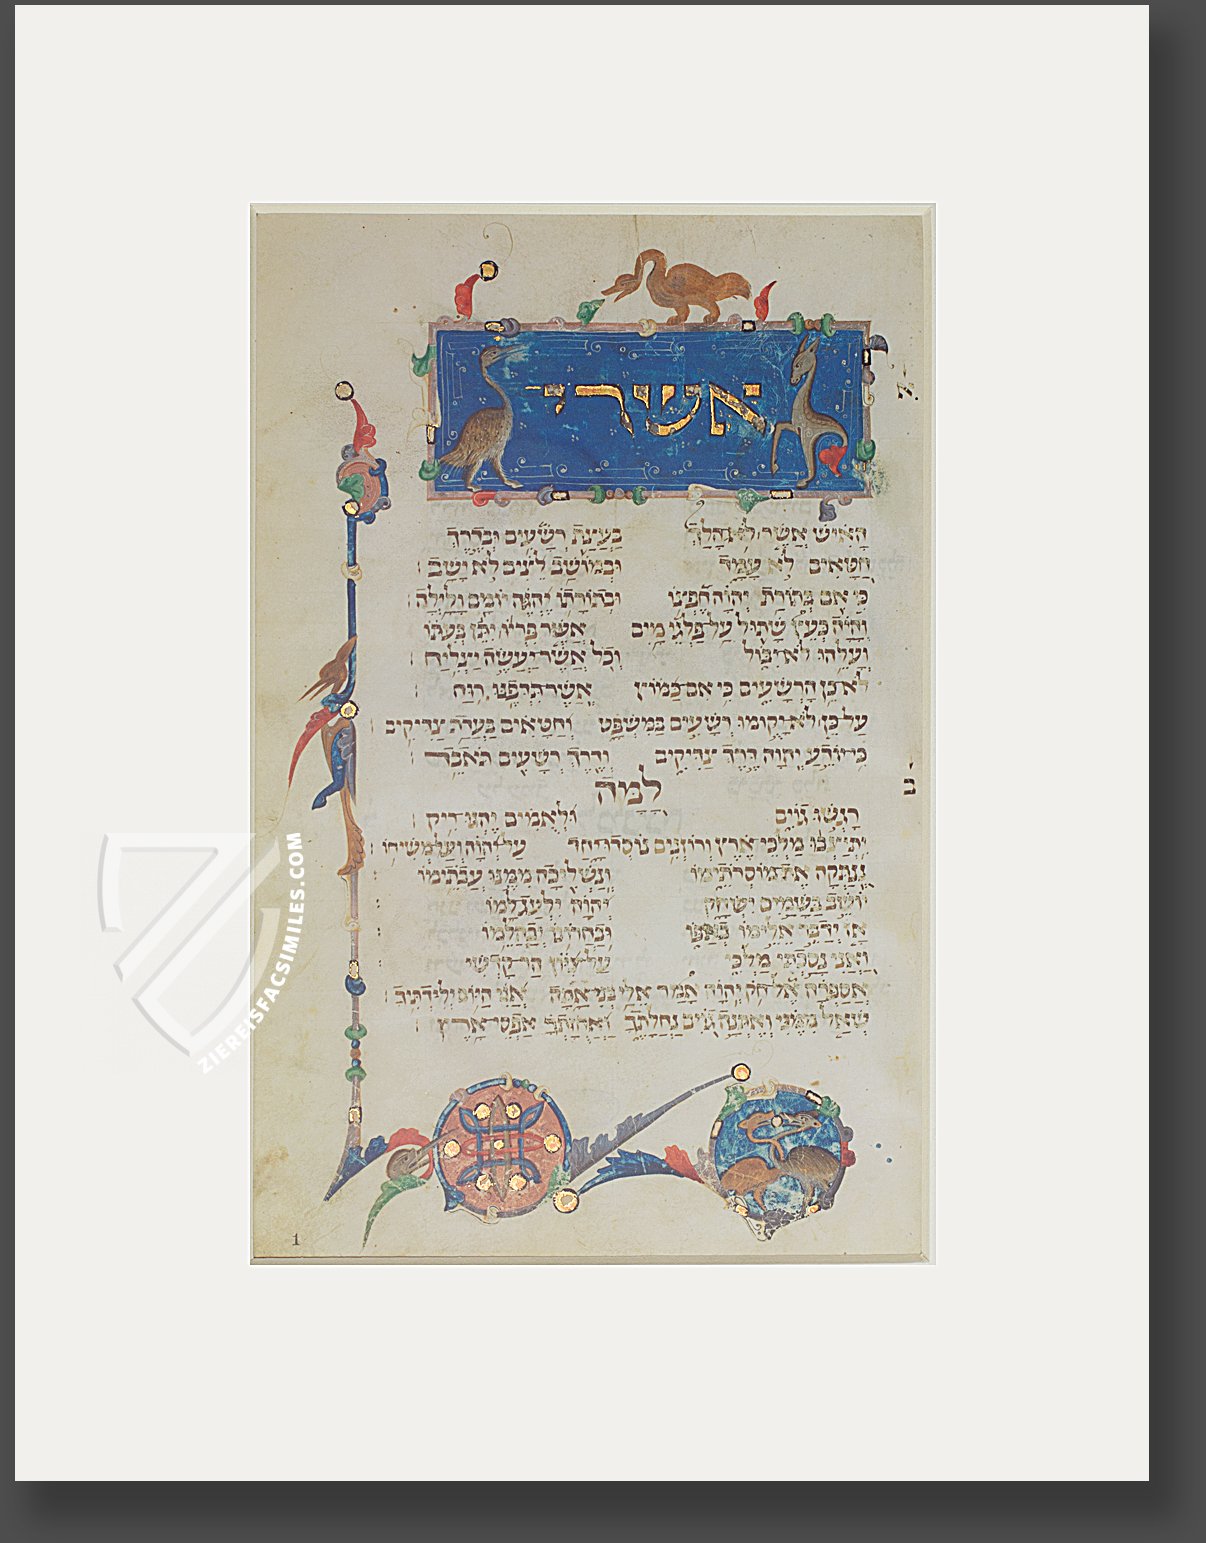 אשרי
א
האיש אשר לא הלך בעצת רשעים ובדרך
חטאים לא עמד ובמושב לצים לא ישב
כי אם בתורת יהוה חפצו ובתורתו יהגה יומם ולילה
והיה כעץ שתול על־פלגי מים אשר פריו יתן בעתו
ועלהו לא יבול וכל אשר־יעשה יצליח
לא־כן הרשעים כי אם־כמוץ אשר־תדפנו רוח
על־כן לא־יקומו רשעים במשפט וחטאים בעדת צדיקים
כי־יודע יהוה דרך צדיקים ודרך רשעים תאבד
ב
למה
רגשו גוים ולאמים יהגו־ריק
יתיצבו מלכי־ארץ ורוזנים נוסדו־יחד על־יהוה ועל־משיחו
ננתקה את־מוסרתימו ונשליכה ממנו עבתימו
יושב בשמים ישחק יהוה ילעג־למו
אז ידבר אלימו באפו ובחרונו יבהלמו
ואני נסכתי מלכי על־ציון הר־קדשי
אספרה אל־חק יהוה אמר אלי בני־אתה אני היום ילדתיך
שאל ממני ואתנה גוים נחלתך ואחזתך אפסי־ארץ
1
ZIEREISFACSIMILES.COM